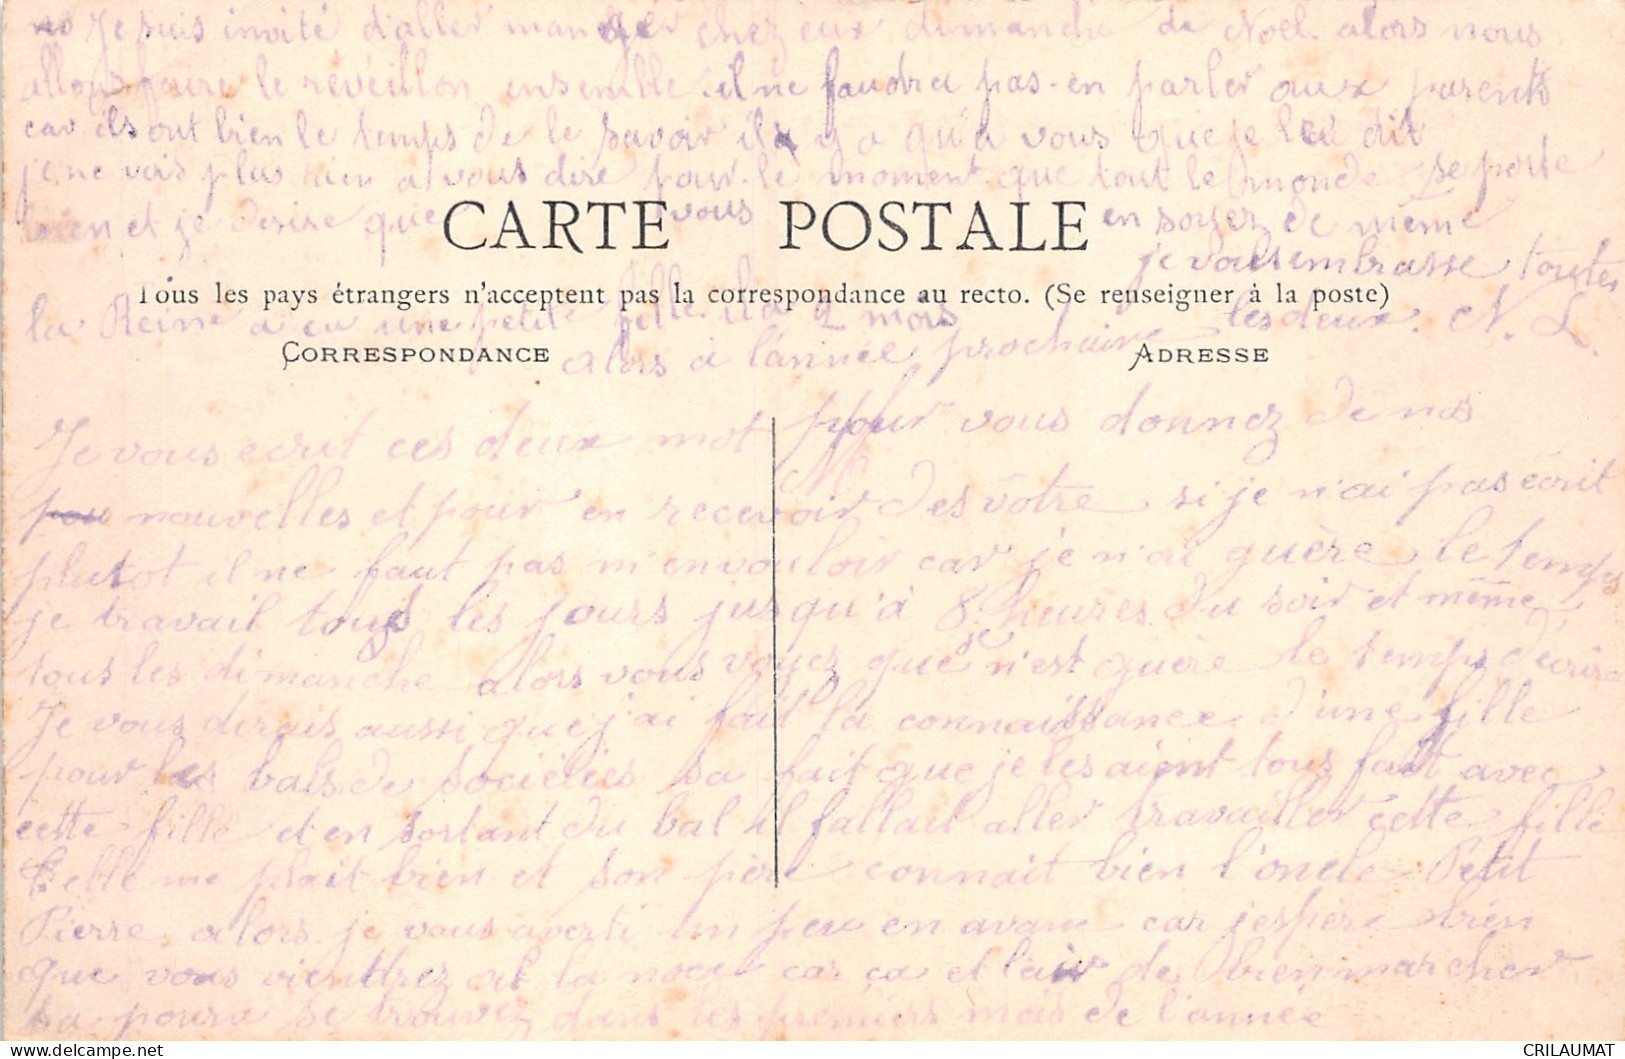 Je suis invité d'aller manger chez eux dimanche de Noël. alors nous
allons faire le réveillon ensemble. il ne faudra pas-en parler aux parents
car ils ont bien le temps de le savoir il y a qu'a vous que je le dit
je ne vois plus rien a vous dire pour le moment que tout le monde se porte
bien et je desire que vous en soyez de même
CARTE POSTALE
je vous embrasse toutes
Tous les pays étrangers n'acceptent pas la correspondance au recto. (Se renseigner à la poste)
la Reine a eu une petite fille il a 2 mois les deux. N. L.
CORRESPONDANCE
alors à l'année prochaine
ADRESSE
Je vous ecrit ces deux mot pour vous donnez de nos
nouvelles et pour en recevoir des vôtre si je n'ai pas écrit
plutot il ne faut pas m'envouloir car je n'ai guère le temps
je travail tous les jours jusqu'à 8 heures du soir et même
tous les dimanche alors vous voyez que se n'est guère le temps d'écrire
Je vous dirais aussi que j'ai fait la connaissance d'une fille
pour les bals de sociétées sa fait que je les aient tous fait avec
cette fille et en sortant du bal il fallait aller travailler cette fille
elle me plait bien et son père connait bien l'oncle Petit
Pierre, alors je vous averti un peu en avance car j'espère bien
que vous viendrez at la noce car ça et l'air de bien marcher
sa poura se trouvez dans les premiers mois de l'année
CRILAUMAT